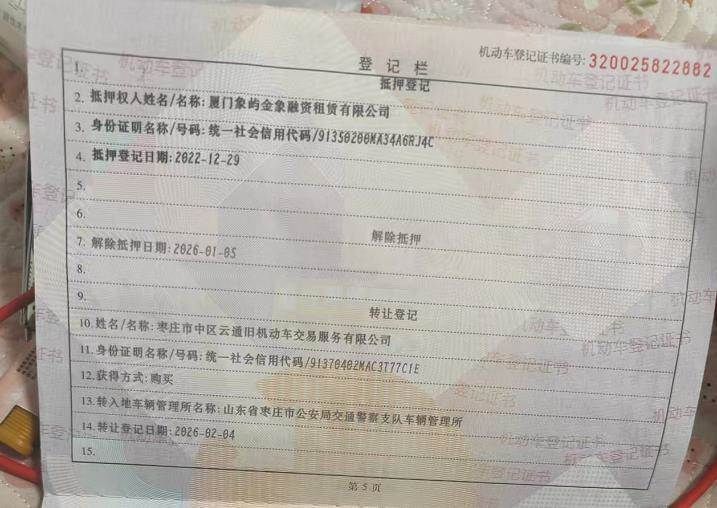 机动车登记证书编号: 320025822882
登 记 栏
1. 抵押登记
2. 抵押权人姓名/名称: 厦门象屿金象融资租赁有限公司
3. 身份证明名称/号码: 统一社会信用代码/91350200MA34A6RJ4C
4. 抵押登记日期: 2022-12-29
5.
6. 解除抵押
7. 解除抵押日期: 2026-01-05
8.
9. 转让登记
10. 姓名/名称: 枣庄市中区云通旧机动车交易服务有限公司
11. 身份证明名称/号码: 统一社会信用代码/91370402MAC3T77C1E
12. 获得方式: 购买
13. 转入地车辆管理所名称: 山东省枣庄市公安局交通警察支队车辆管理所
14. 转让登记日期: 2026-02-04
15.
第 5 页